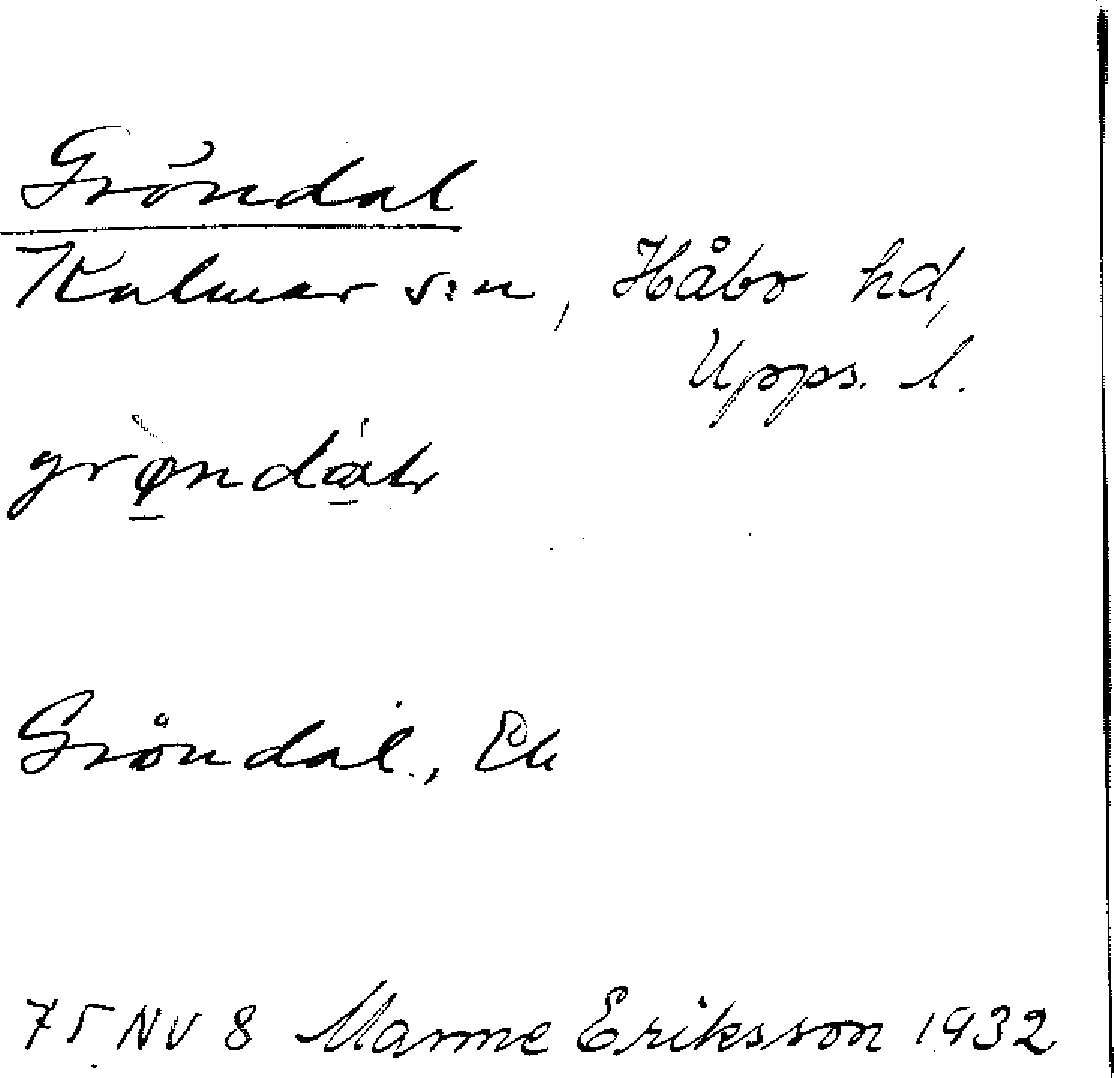 Gröndal
Kalmar s:n, Håbo hd,
Upps. l.
grøndɑl
Gröndal, Ek
75 NV 8 Manne Eriksson 1932